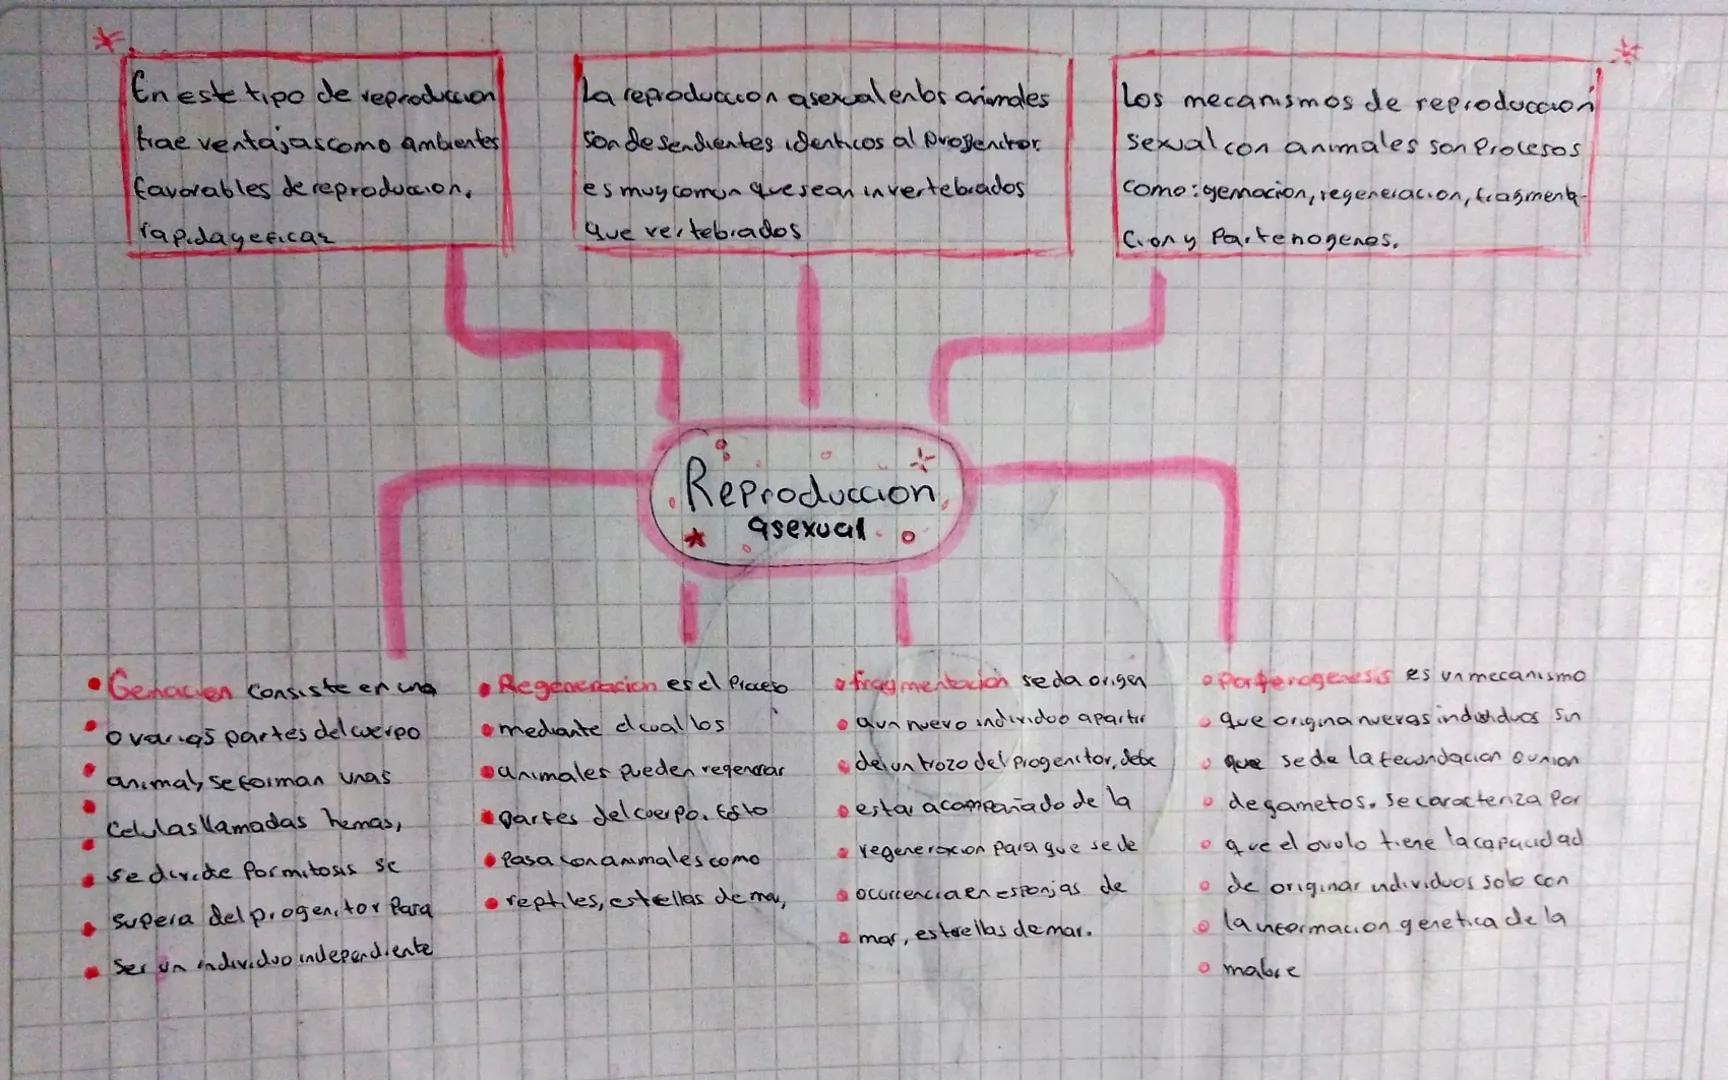 En este tipo de reproduccion
trae ventajas como ambientes
favorables de reproduccion,
rapida y eficaz
La reproduccion asexual en los animales
son desendientes identicos al progenitor.
es muy comun que sean invertebrados
que vertebrados
Los mecanismos de reproduccion
sexual con animales son Procesos
como: gemacion, regeneracion, fragmenta-
cion y Partenogenes.
Reproduccion
asexual
Gemacien consiste en una
o varias partes del cuerpo
animal, se forman unas
celulas llamadas hemas,
se divide por mitosis se
supera del progenitor Para
Ser un individuo independiente
Regeneracion es el Proceso
mediante el cual los
animales pueden regenerar
partes del cuerpo. Esto
Pasa con animales como
reptiles, estrellas de mar,
fragmentacion se da origen
a un nuevo individuo apartir
de un trozo del progenitor, debe
estar acompañado de la
regeneracion para que se de
ocurrencia en esponjas de
mar, estrellas de mar.
partenogenesis es un mecanismo
que origina nuevas individuos sin
que se de la fecundacion o union
de gametos. Se caracteriza por
que el ovulo tiene la capacidad
de originar individuos solo con
la informacion genetica de la
mabre